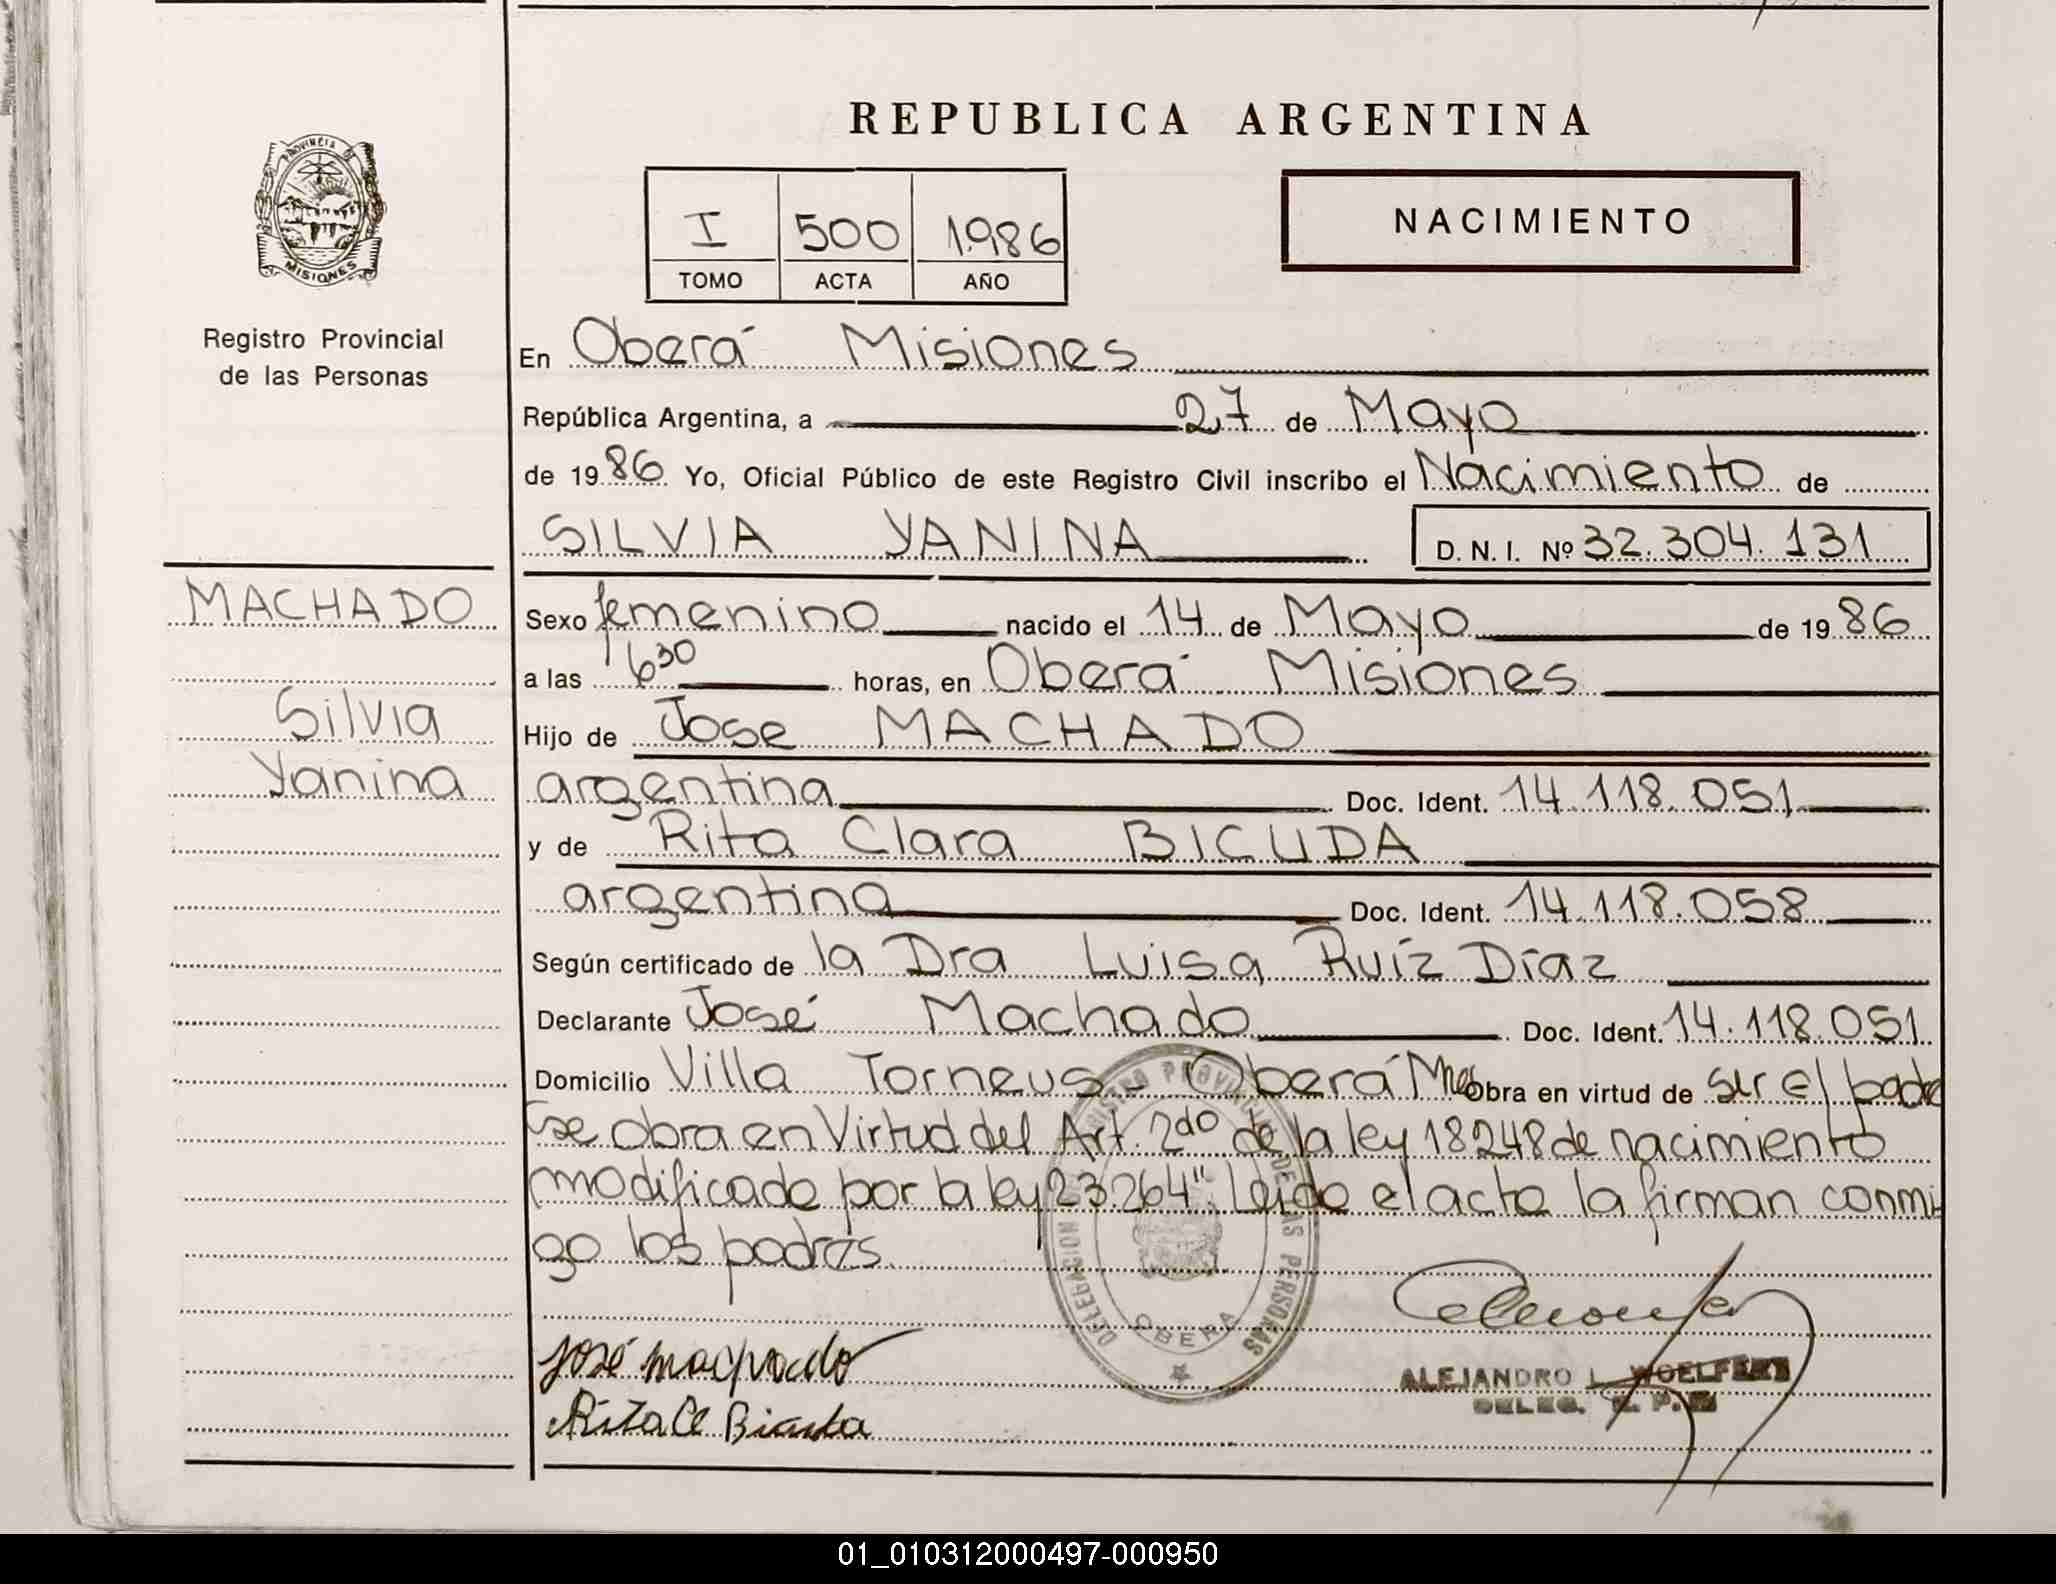 REPUBLICA ARGENTINA
PROVINCIA DE
MISIONES
Registro Provincial
de las Personas
I 500 1.986
TOMO ACTA AÑO
NACIMIENTO
En Oberá Misiones
República Argentina, a 27 de Mayo
de 1986 Yo, Oficial Público de este Registro Civil inscribo el Nacimiento de
SILVIA YANINA D. N. I. Nº 32.304.131
MACHADO
Silvia
Yanina
Sexo femenino nacido el 14 de Mayo de 1986
a las 6 30 horas, en Oberá Misiones
Hijo de Jose MACHADO
argentina Doc. Ident. 14.118.051
y de Rita Clara BICUDA
argentina Doc. Ident. 14.118.058
Según certificado de la Dra Luisa Ruíz Díaz
Declarante José Machado Doc. Ident. 14.118.051
Domicilio Villa Torneus - Oberá Mnes Obra en virtud de ser el padre
"se obra en Virtud del Art. 2do de la ley 18248 de nacimiento
modificado por la ley 23.264" Leído el acta la firman conmi
go los padres.
DELEGACION REGISTRO PROVINCIAL DE LAS PERSONAS
OBERA
José machado
Rita Cl Bicuda
ALEJANDRO L. WOELFERT
DELEG. R. P.
01_010312000497-000950